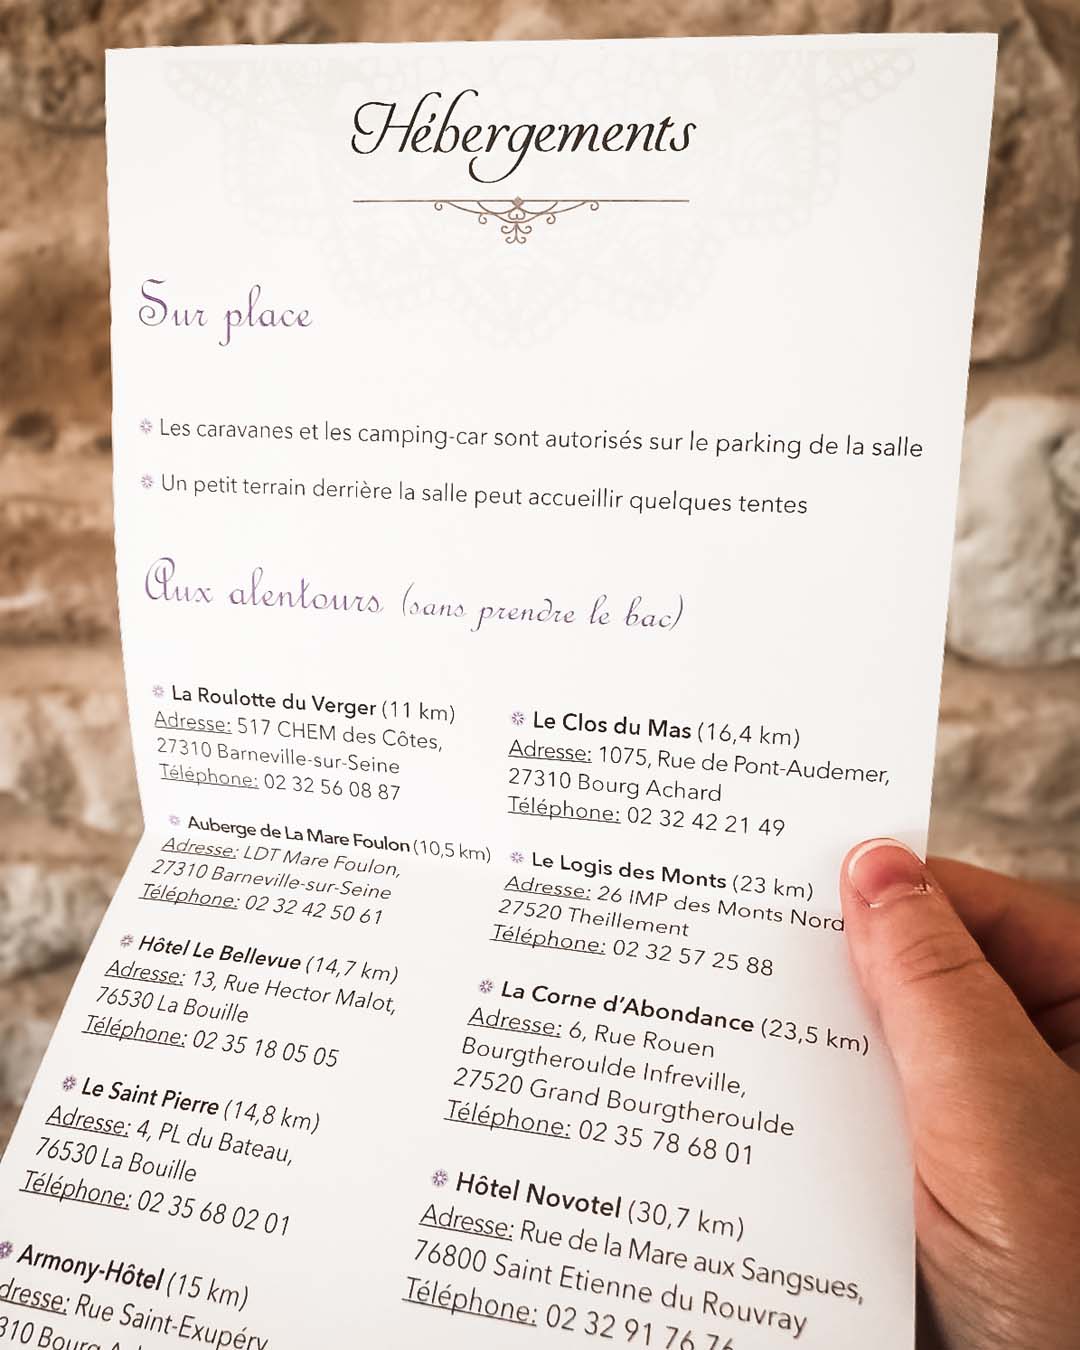 Hébergements
Sur place
Les caravanes et les camping-car sont autorisés sur le parking de la salle
Un petit terrain derrière la salle peut accueillir quelques tentes
Aux alentours (sans prendre le bac)
La Roulotte du Verger (11 km)
Adresse: 517 CHEM des Côtes,
27310 Barneville-sur-Seine
Téléphone: 02 32 56 08 87
Auberge de La Mare Foulon (10,5 km)
Adresse: LDT Mare Foulon,
27310 Barneville-sur-Seine
Téléphone: 02 32 42 50 61
Hôtel Le Bellevue (14,7 km)
Adresse: 13, Rue Hector Malot,
76530 La Bouille
Téléphone: 02 35 18 05 05
Le Saint Pierre (14,8 km)
Adresse: 4, PL du Bateau,
76530 La Bouille
Téléphone: 02 35 68 02 01
Armony-Hôtel (15 km)
dresse: Rue Saint-Exupéry
310 Bourg
Le Clos du Mas (16,4 km)
Adresse: 1075, Rue de Pont-Audemer,
27310 Bourg Achard
Téléphone: 02 32 42 21 49
Le Logis des Monts (23 km)
Adresse: 26 IMP des Monts Nord
27520 Theillement
Téléphone: 02 32 57 25 88
La Corne d'Abondance (23,5 km)
Adresse: 6, Rue Rouen
Bourgtheroulde Infreville,
27520 Grand Bourgtheroulde
Téléphone: 02 35 78 68 01
Hôtel Novotel (30,7 km)
Adresse: Rue de la Mare aux Sangsues,
76800 Saint Etienne du Rouvray
Téléphone: 02 32 91 76 76